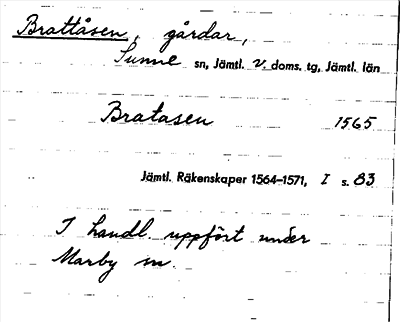 Brattåsen, gårdar,
Sunne sn, Jämtl. v. doms. tg, Jämtl. län
Bratasen 1565
Jämtl. Räkenskaper 1564–1571, I s. 83
I handl. uppfört under
Marby sn.